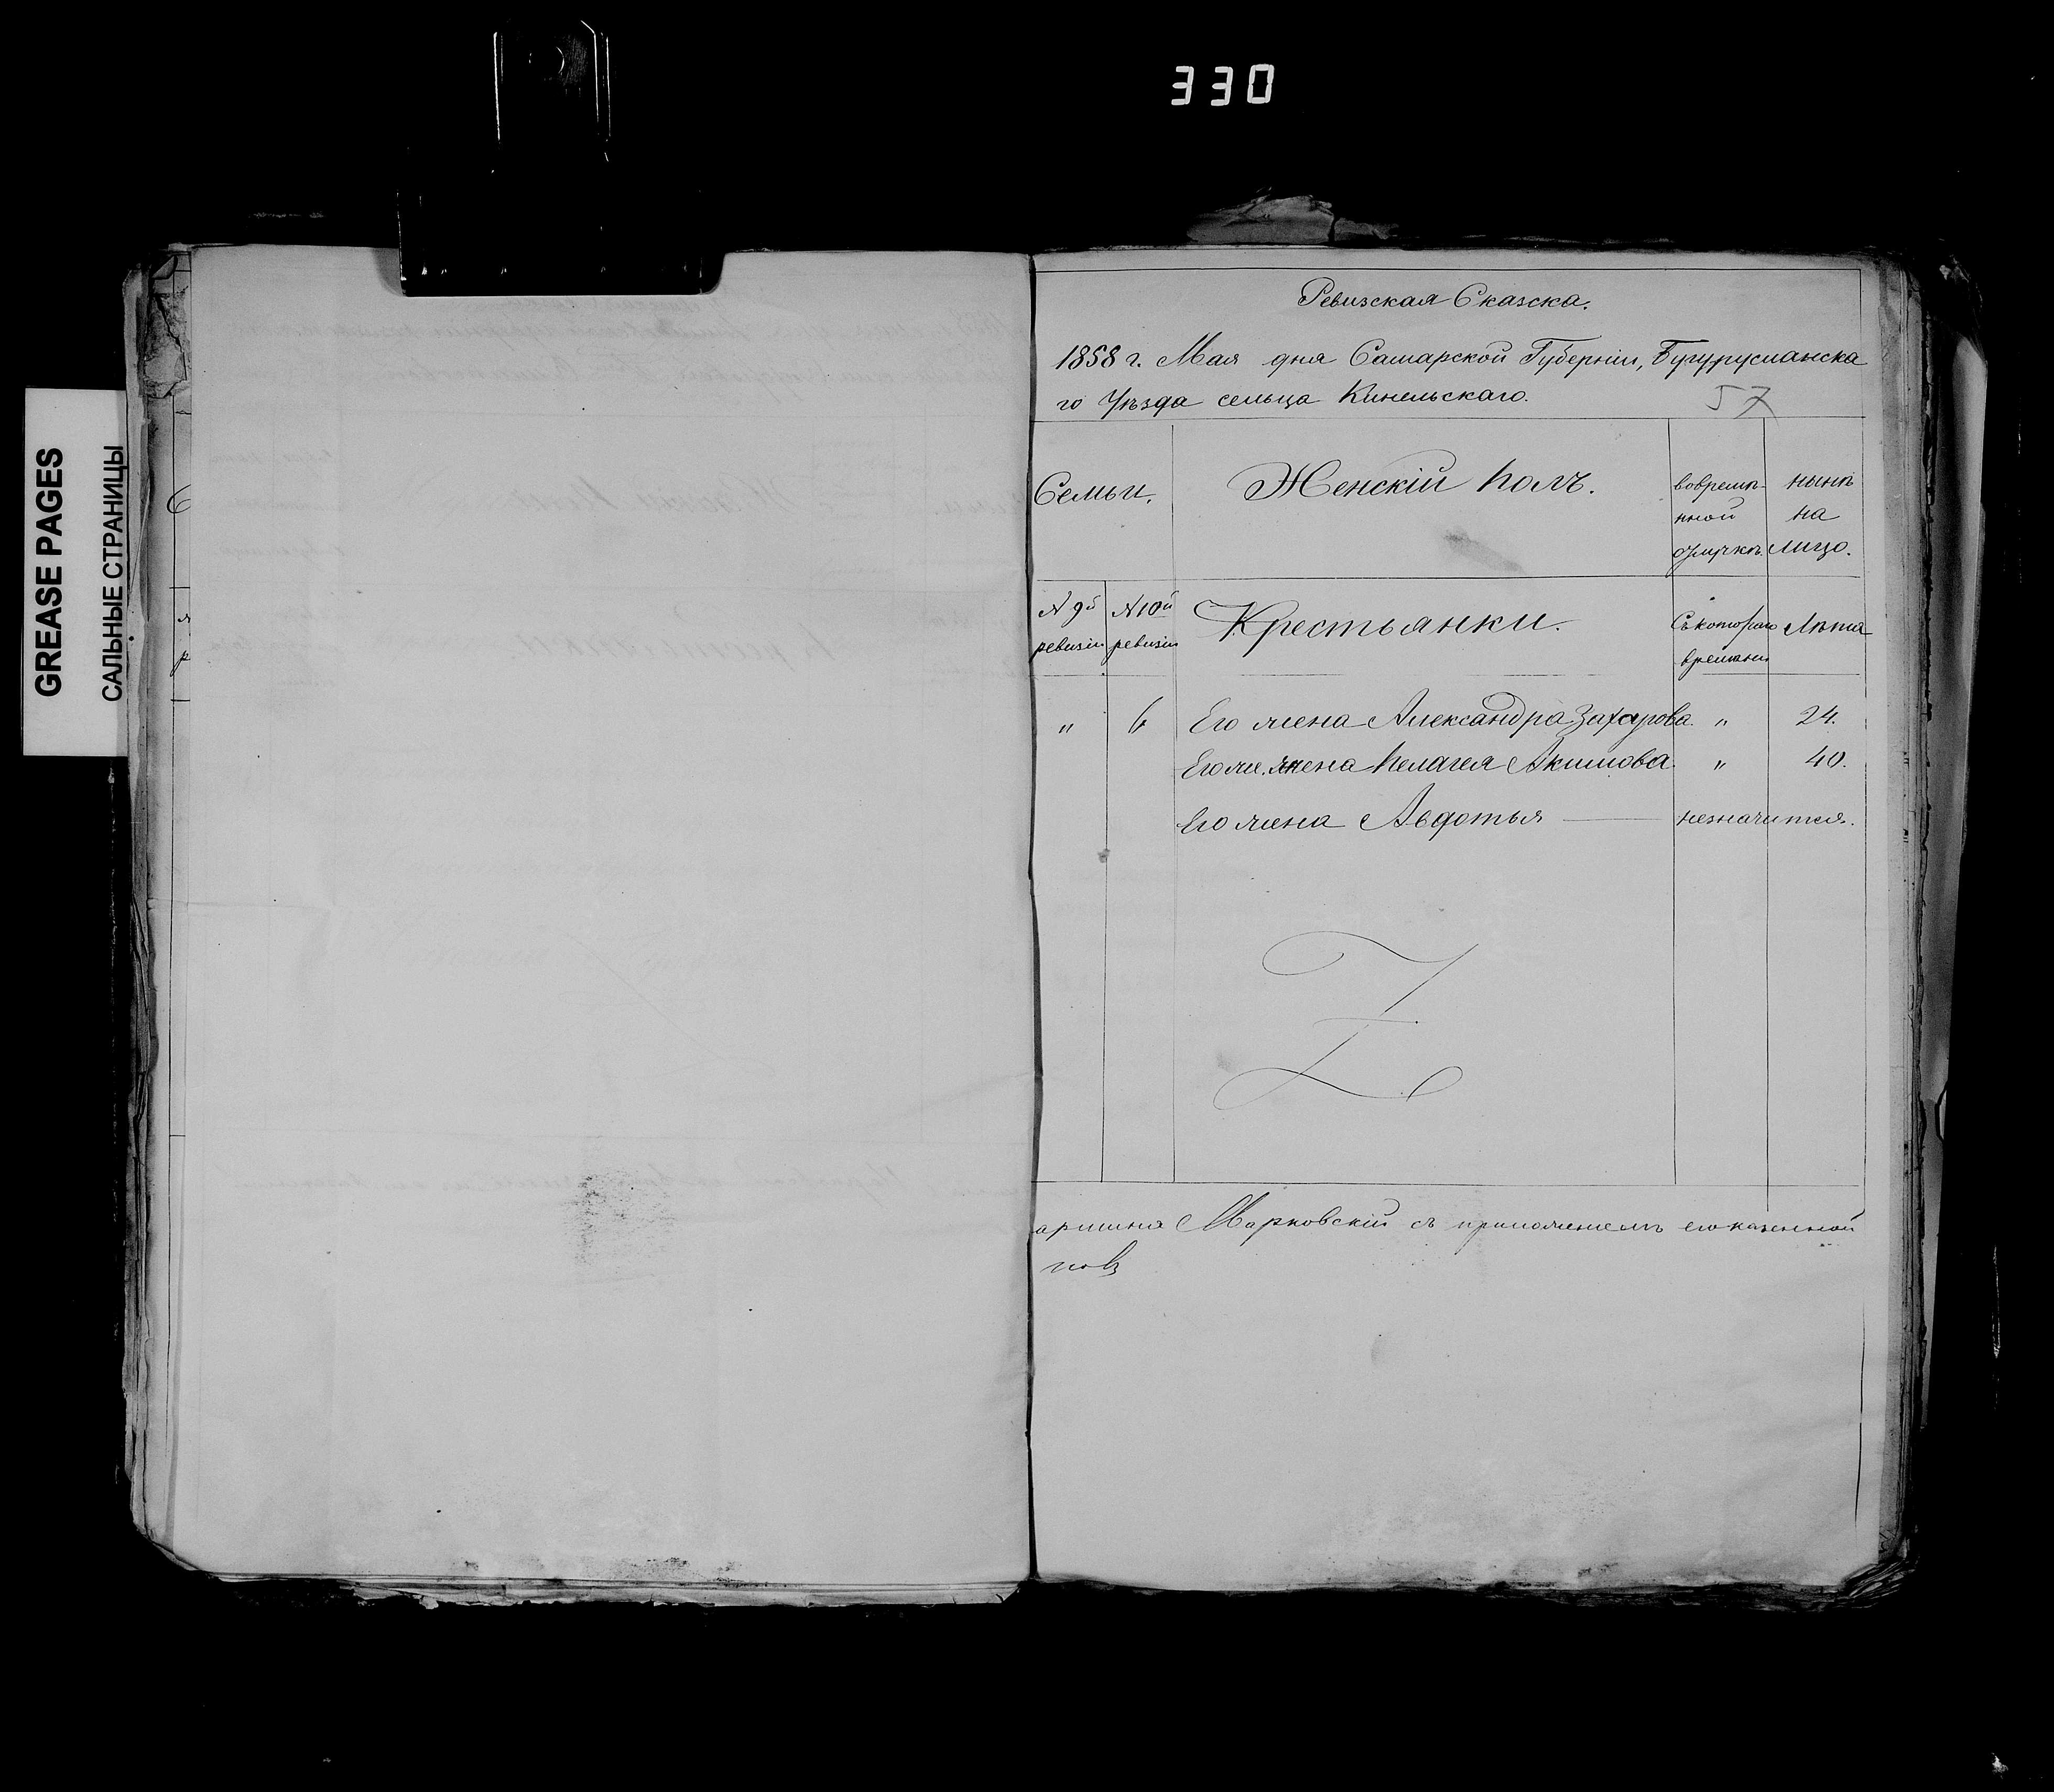 330
GREASE PAGES
САЛЬНЫЕ СТРАНИЦЫ
Ревизская Сказска.
1858 г. Мая дня Самарской Губерніи, Бугурусланска
го Уѣзда сельца Кинельскаго.
57
Семьи. Женскій полъ. вовремѣ- нынѣ
нной на
отлучкѣ. лицо.
№ 9й № 10й Крестьянки. Съкотораго Лѣта
ревизіи ревизіи времени
" 6 Его жена Александра Захарова. " 24.
Его жена Пелагея Акимова. " 40.
Его жена Авдотья — незначится.
Марковскій съ приложеніемъ его казенной